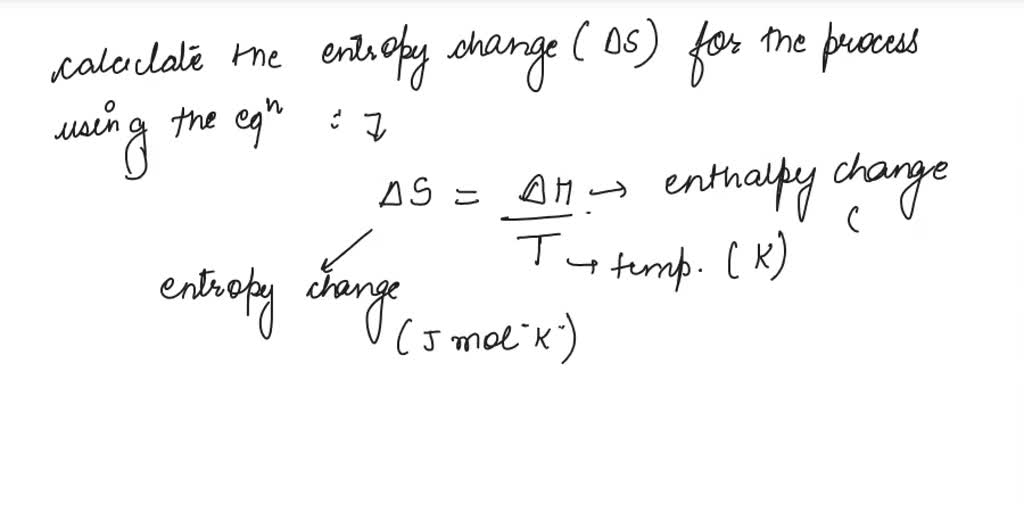 calculate the entropy change (ΔS) for the process
using the eqⁿ :
ΔS = ΔH → enthalpy change (
T → temp. (K)
entropy change
(J mol⁻ K⁻)